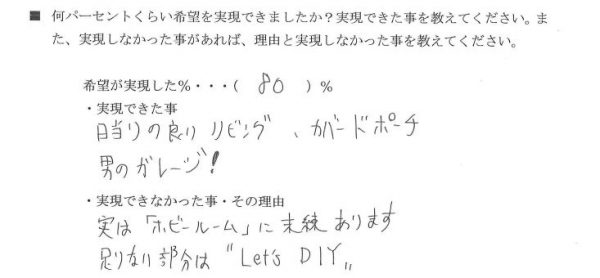 ■ 何パーセントくらい希望を実現できましたか？実現できた事を教えてください。ま
た、実現しなかった事があれば、理由と実現しなかった事を教えてください。
希望が実現した%・・・( 80 ) %
・実現できた事
日当りの良い リビング 、カバードポーチ
男のガレージ!
・実現できなかった事・その理由
実は「ホビールーム」に未練あります
足りない部分は "Let's DIY„